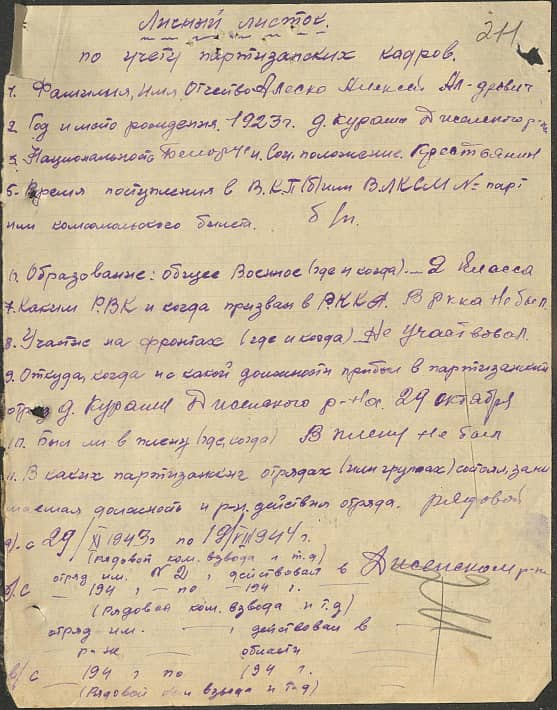 Личный листок.
211
по учету партизанских кадров.
1. Фамилия, имя, Отчество Алеско Алексей Ал-дрович
2. Год и место рождения. 1923 г. д. Кураши Дисенского р-на
3. Национальность Белорус 4. Соц. положение. Крестьянин
5. Время поступления в В.К.П.(б) или ВЛКСМ № парт
или комсомольского билета. б/п.
6. Образование: общее Военное (где и когда). – 2 класса
7. Каким Р.ВК и когда призван в Р.ККА. В ркка не был
8. Участие на фронтах (где и когда). Не участвовал.
9. Откуда, когда и с какой должности прибыл в партизанский
отряд д. Кураши Дисенского р-на. 29 октября
10. Был ли в плену (где, когда) В плену не был
11. В каких партизанских отрядах (или группах) состоял, зани
маемая должность и р-н. действия отряда. рядовой
а). с 29/XI 1943 г. по 19/VII 1944 г.
(рядовой ком. взвода и т.д)
отряд им. № 2, действовал в Дисенском р-не
б). с – 194 , – по – 194 г.
(рядовой ком. взвода и т.д)
отряд им. – , действовал в –
р-не области
в/ с – 194 г. по – 194 г.
(Рядовой ком взвода и т.д)